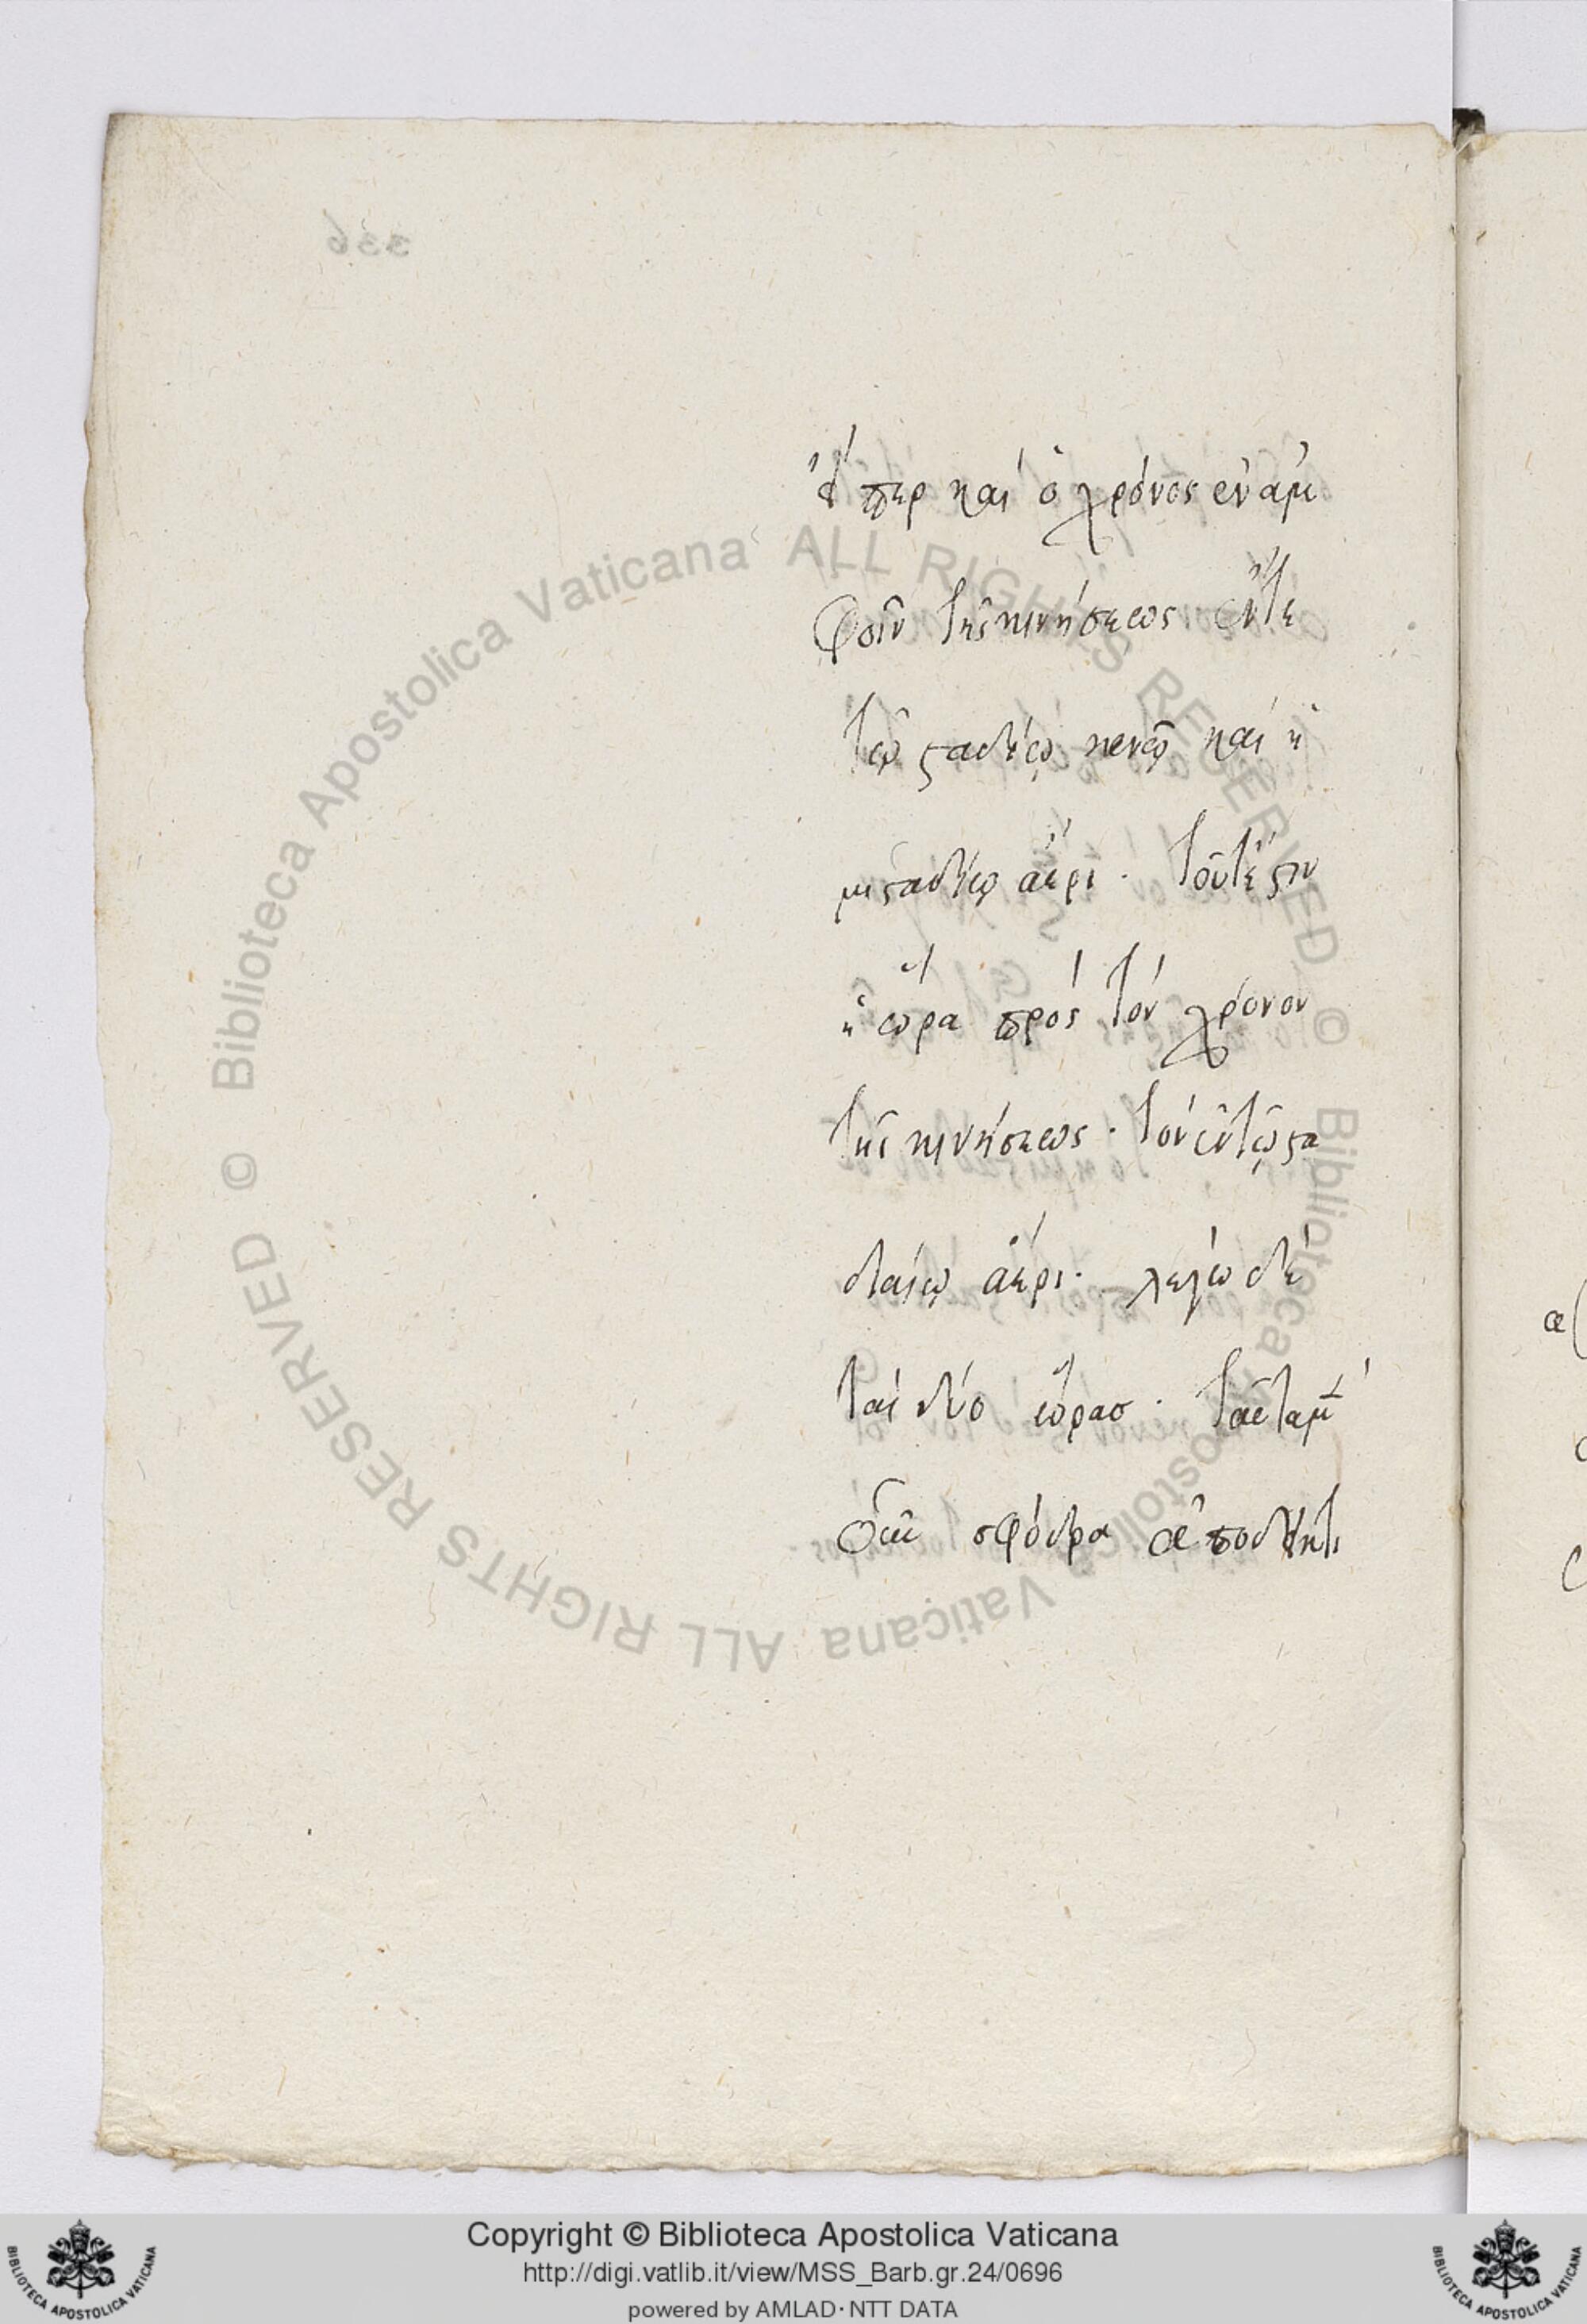 336
ὅπερ καὶ ὁ χρόνος ἐν ἀμ
φοῖν τῆς κινήσεως ἔν τε
τῷ σταδίῳ κενῷ καὶ ἡ
μισταδίῳ ἀέρι. τοῦτέστιν
ἡ ὥρα πρὸς τὸν χρόνον
τῆς κινήσεως. τὸν ἐν τῷ στα
δίῳ ἀέρι. λέγω δὲ
τὰς δύο ὥρας.
σφόδρα
© Biblioteca Apostolica Vaticana ALL RIGHTS RESERVED © Biblioteca Apostolica Vaticana ALL RIGHTS RESERVED
Copyright © Biblioteca Apostolica Vaticana
http://digi.vatlib.it/view/MSS_Barb.gr.24/0696
powered by AMLAD·NTT DATA
BIBLIOTECA APOSTOLICA VATICANA
BIBLIOTECA APOSTOLICA VATICANA